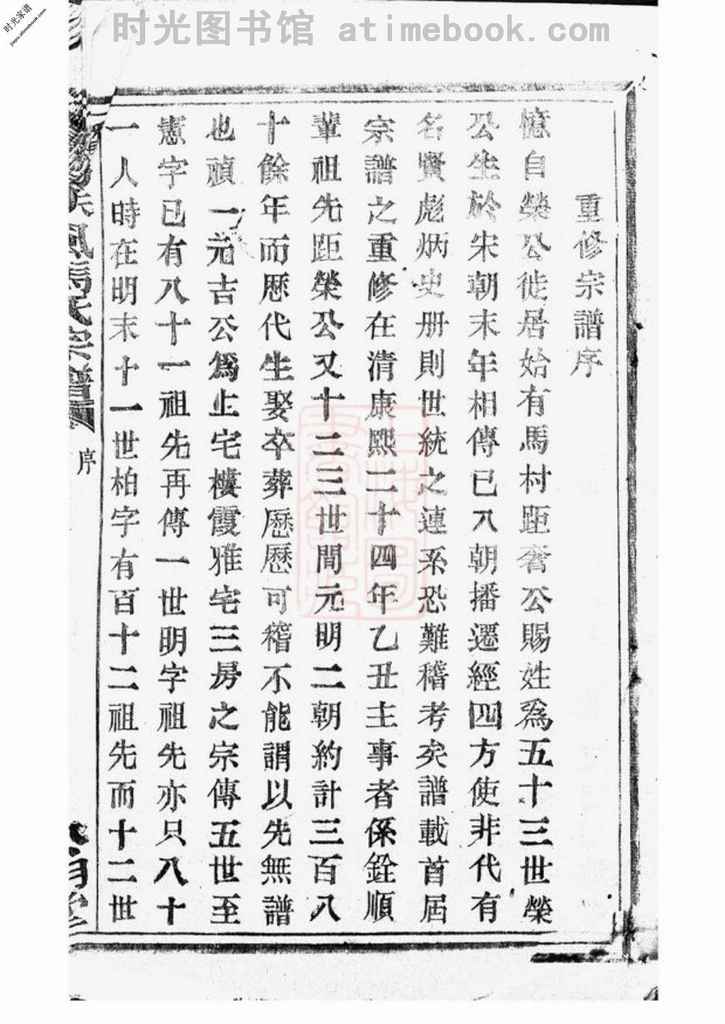 时光图书馆 atimebook.com
时光家谱
重修宗譜序
憶自榮公徙居始有馬村距奢公賜姓爲五十三世榮
公生於宋朝末年相傳已八朝播遷經四方使非代有
名賢彪炳史册則世統之連系恐難稽考矣譜載首居
宗譜之重修在清康熙二十四年乙丑主事者係銓順
輩祖先距榮公又十二三世間元明二朝約計三百八
十餘年而歷代生娶卒葬歷歷可稽不能謂以先無譜
也禎一元吉公爲上宅樓霞雅宅三房之宗傳五世至
憲字已有八十一祖先再傳一世明字祖先亦只八十
一人時在明末十一世柏字有百十二祖先而十二世
風馬氏宗譜
序